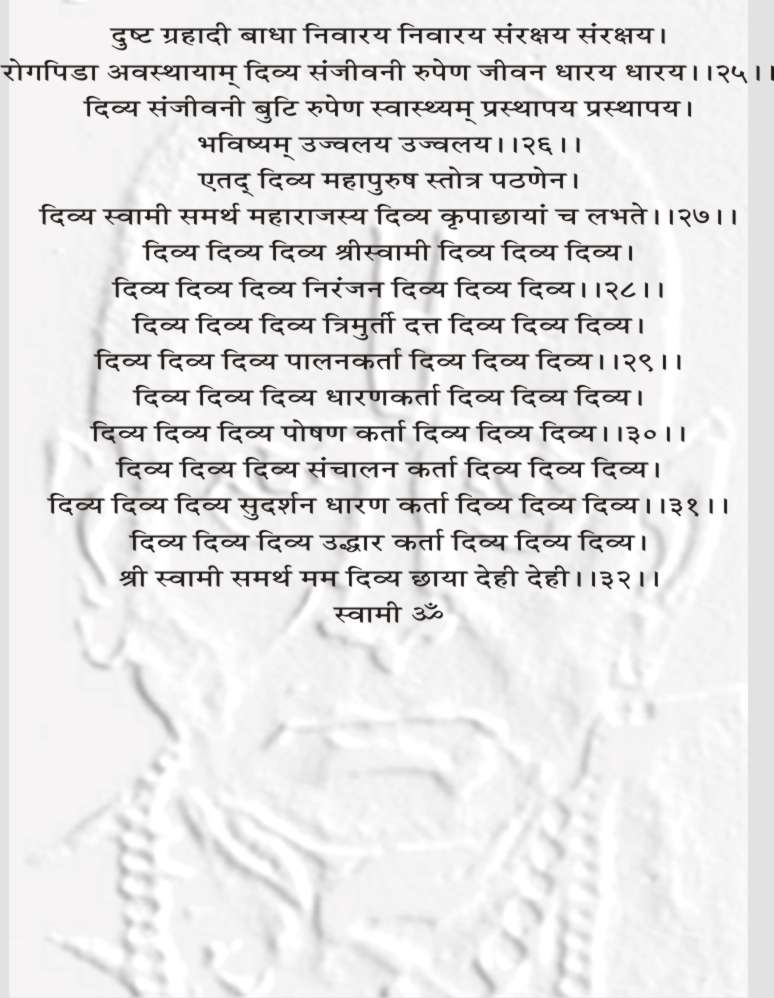 दुष्ट ग्रहादी बाधा निवारय निवारय संरक्षय संरक्षय।
रोगपिडा अवस्थायाम् दिव्य संजीवनी रुपेण जीवन धारय धारय।।२५।।
दिव्य संजीवनी बुटि रुपेण स्वास्थ्यम् प्रस्थापय प्रस्थापय।
भविष्यम् उज्वलय उज्वलय।।२६।।
एतद् दिव्य महापुरुष स्तोत्र पठणेन।
दिव्य स्वामी समर्थ महाराजस्य दिव्य कृपाछायां च लभते।।२७।।
दिव्य दिव्य दिव्य श्रीस्वामी दिव्य दिव्य दिव्य।
दिव्य दिव्य दिव्य निरंजन दिव्य दिव्य दिव्य।।२८।।
दिव्य दिव्य दिव्य त्रिमुर्ती दत्त दिव्य दिव्य दिव्य।
दिव्य दिव्य दिव्य पालनकर्ता दिव्य दिव्य दिव्य।।२९।।
दिव्य दिव्य दिव्य धारणकर्ता दिव्य दिव्य दिव्य।
दिव्य दिव्य दिव्य पोषण कर्ता दिव्य दिव्य दिव्य।।३०।।
दिव्य दिव्य दिव्य संचालन कर्ता दिव्य दिव्य दिव्य।
दिव्य दिव्य दिव्य सुदर्शन धारण कर्ता दिव्य दिव्य दिव्य।।३१।।
दिव्य दिव्य दिव्य उद्धार कर्ता दिव्य दिव्य दिव्य।
श्री स्वामी समर्थ मम दिव्य छाया देही देही।।३२।।
स्वामी ॐ